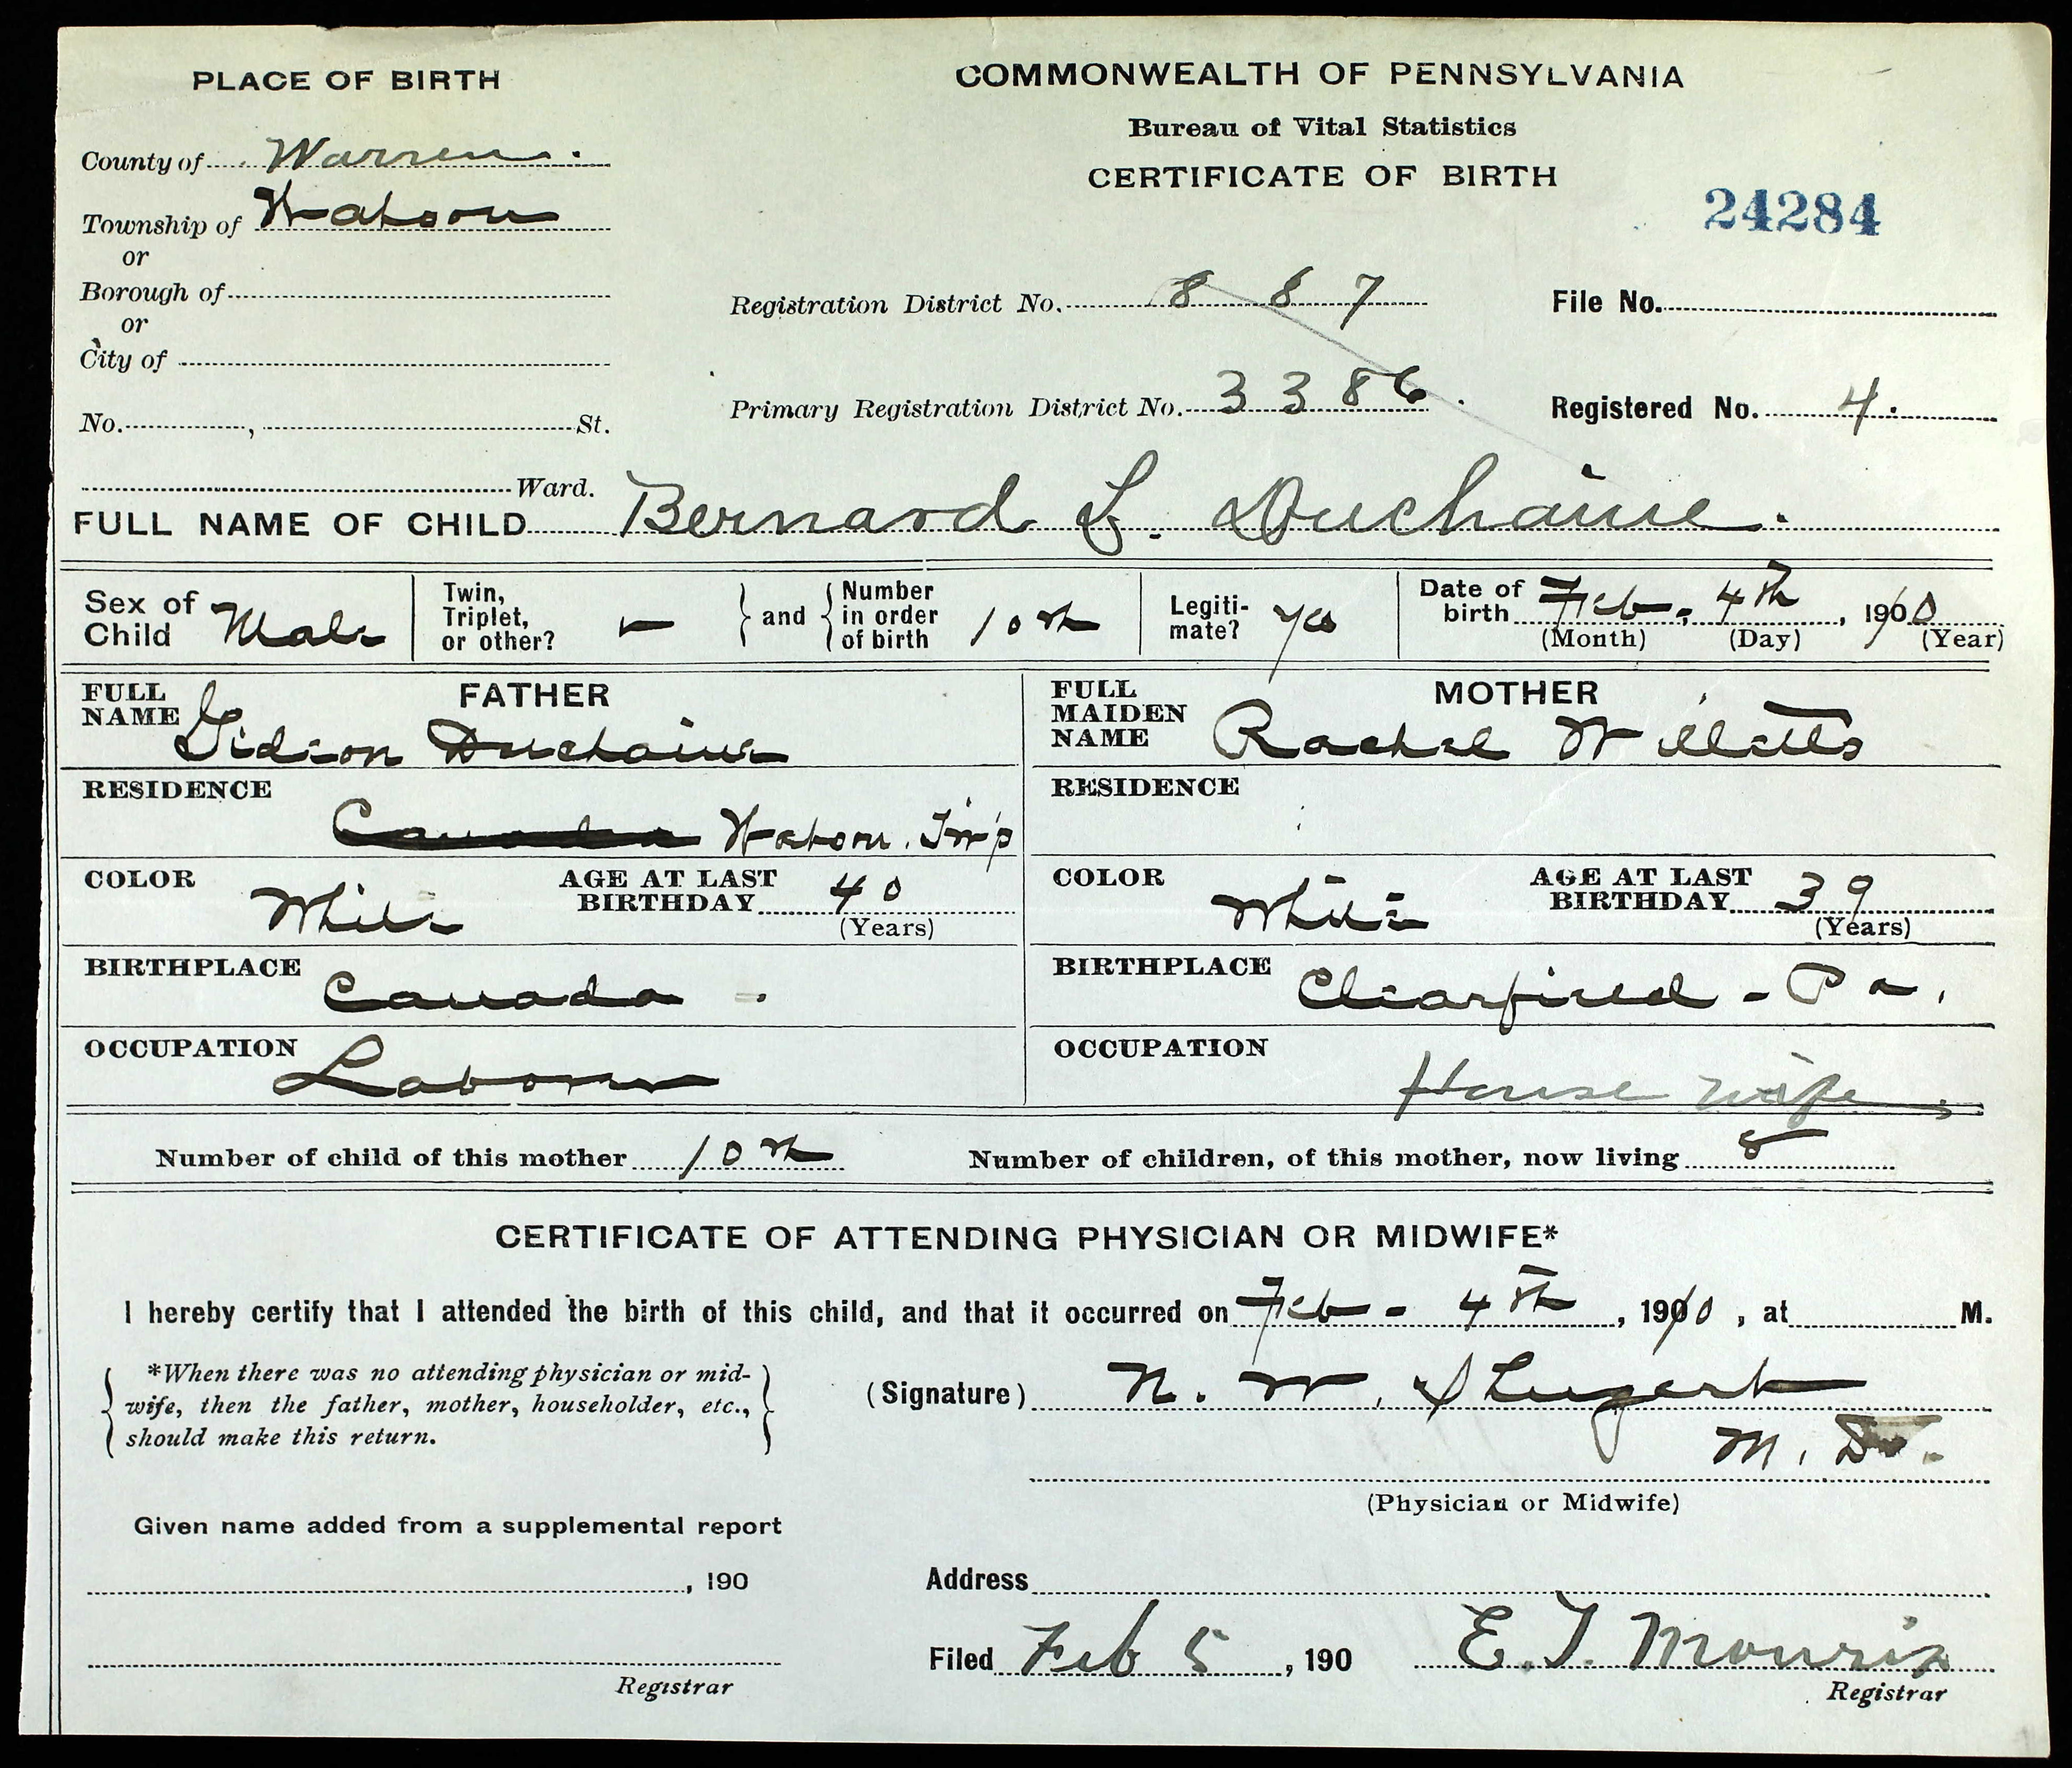 PLACE OF BIRTH
COMMONWEALTH OF PENNSYLVANIA
Bureau of Vital Statistics
CERTIFICATE OF BIRTH
24284
County of Warren.
Township of Watson
or
Borough of
or
City of
No. , St.
Ward.
Registration District No. 8 8 7
File No.
Primary Registration District No. 3 3 8 6.
Registered No. 4.
FULL NAME OF CHILD Bernard L. Duchaine.
Sex of Child Male
Twin, Triplet, or other? –
and
Number in order of birth 10th
Legiti-mate? Yes
Date of birth Feb. 4th, 1910
(Month) (Day) (Year)
FATHER
FULL NAME Gideon Duchaine
RESIDENCE Canada Watson. Twp
COLOR White
AGE AT LAST BIRTHDAY 40
(Years)
BIRTHPLACE Canada -.
OCCUPATION Laborer
MOTHER
FULL MAIDEN NAME Rachel Willetts
RESIDENCE
COLOR White
AGE AT LAST BIRTHDAY 39
(Years)
BIRTHPLACE Clearfield - Pa.
OCCUPATION House wife.
Number of child of this mother 10th
Number of children, of this mother, now living 8
CERTIFICATE OF ATTENDING PHYSICIAN OR MIDWIFE*
I hereby certify that I attended the birth of this child, and that it occurred on Feb - 4th, 1910, at M.
*When there was no attending physician or mid-
wife, then the father, mother, householder, etc.,
should make this return.
(Signature) N. W. Shugert
M. D.
(Physician or Midwife)
Given name added from a supplemental report
, 190
Registrar
Address
Filed Feb 5, 190
E. T. Morris
Registrar